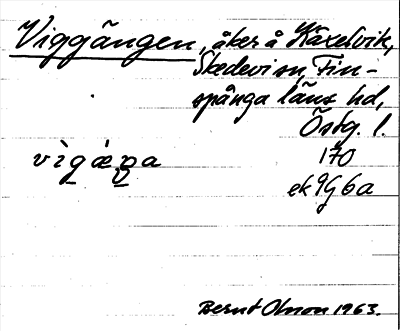 Viggängen, åker å Käxelvik,
Skedevi sn, Fin-
spånga läns hd,
Östg. l.
vìgǽŋa 170
ek 9G6a
Bernt Olsson 1963.